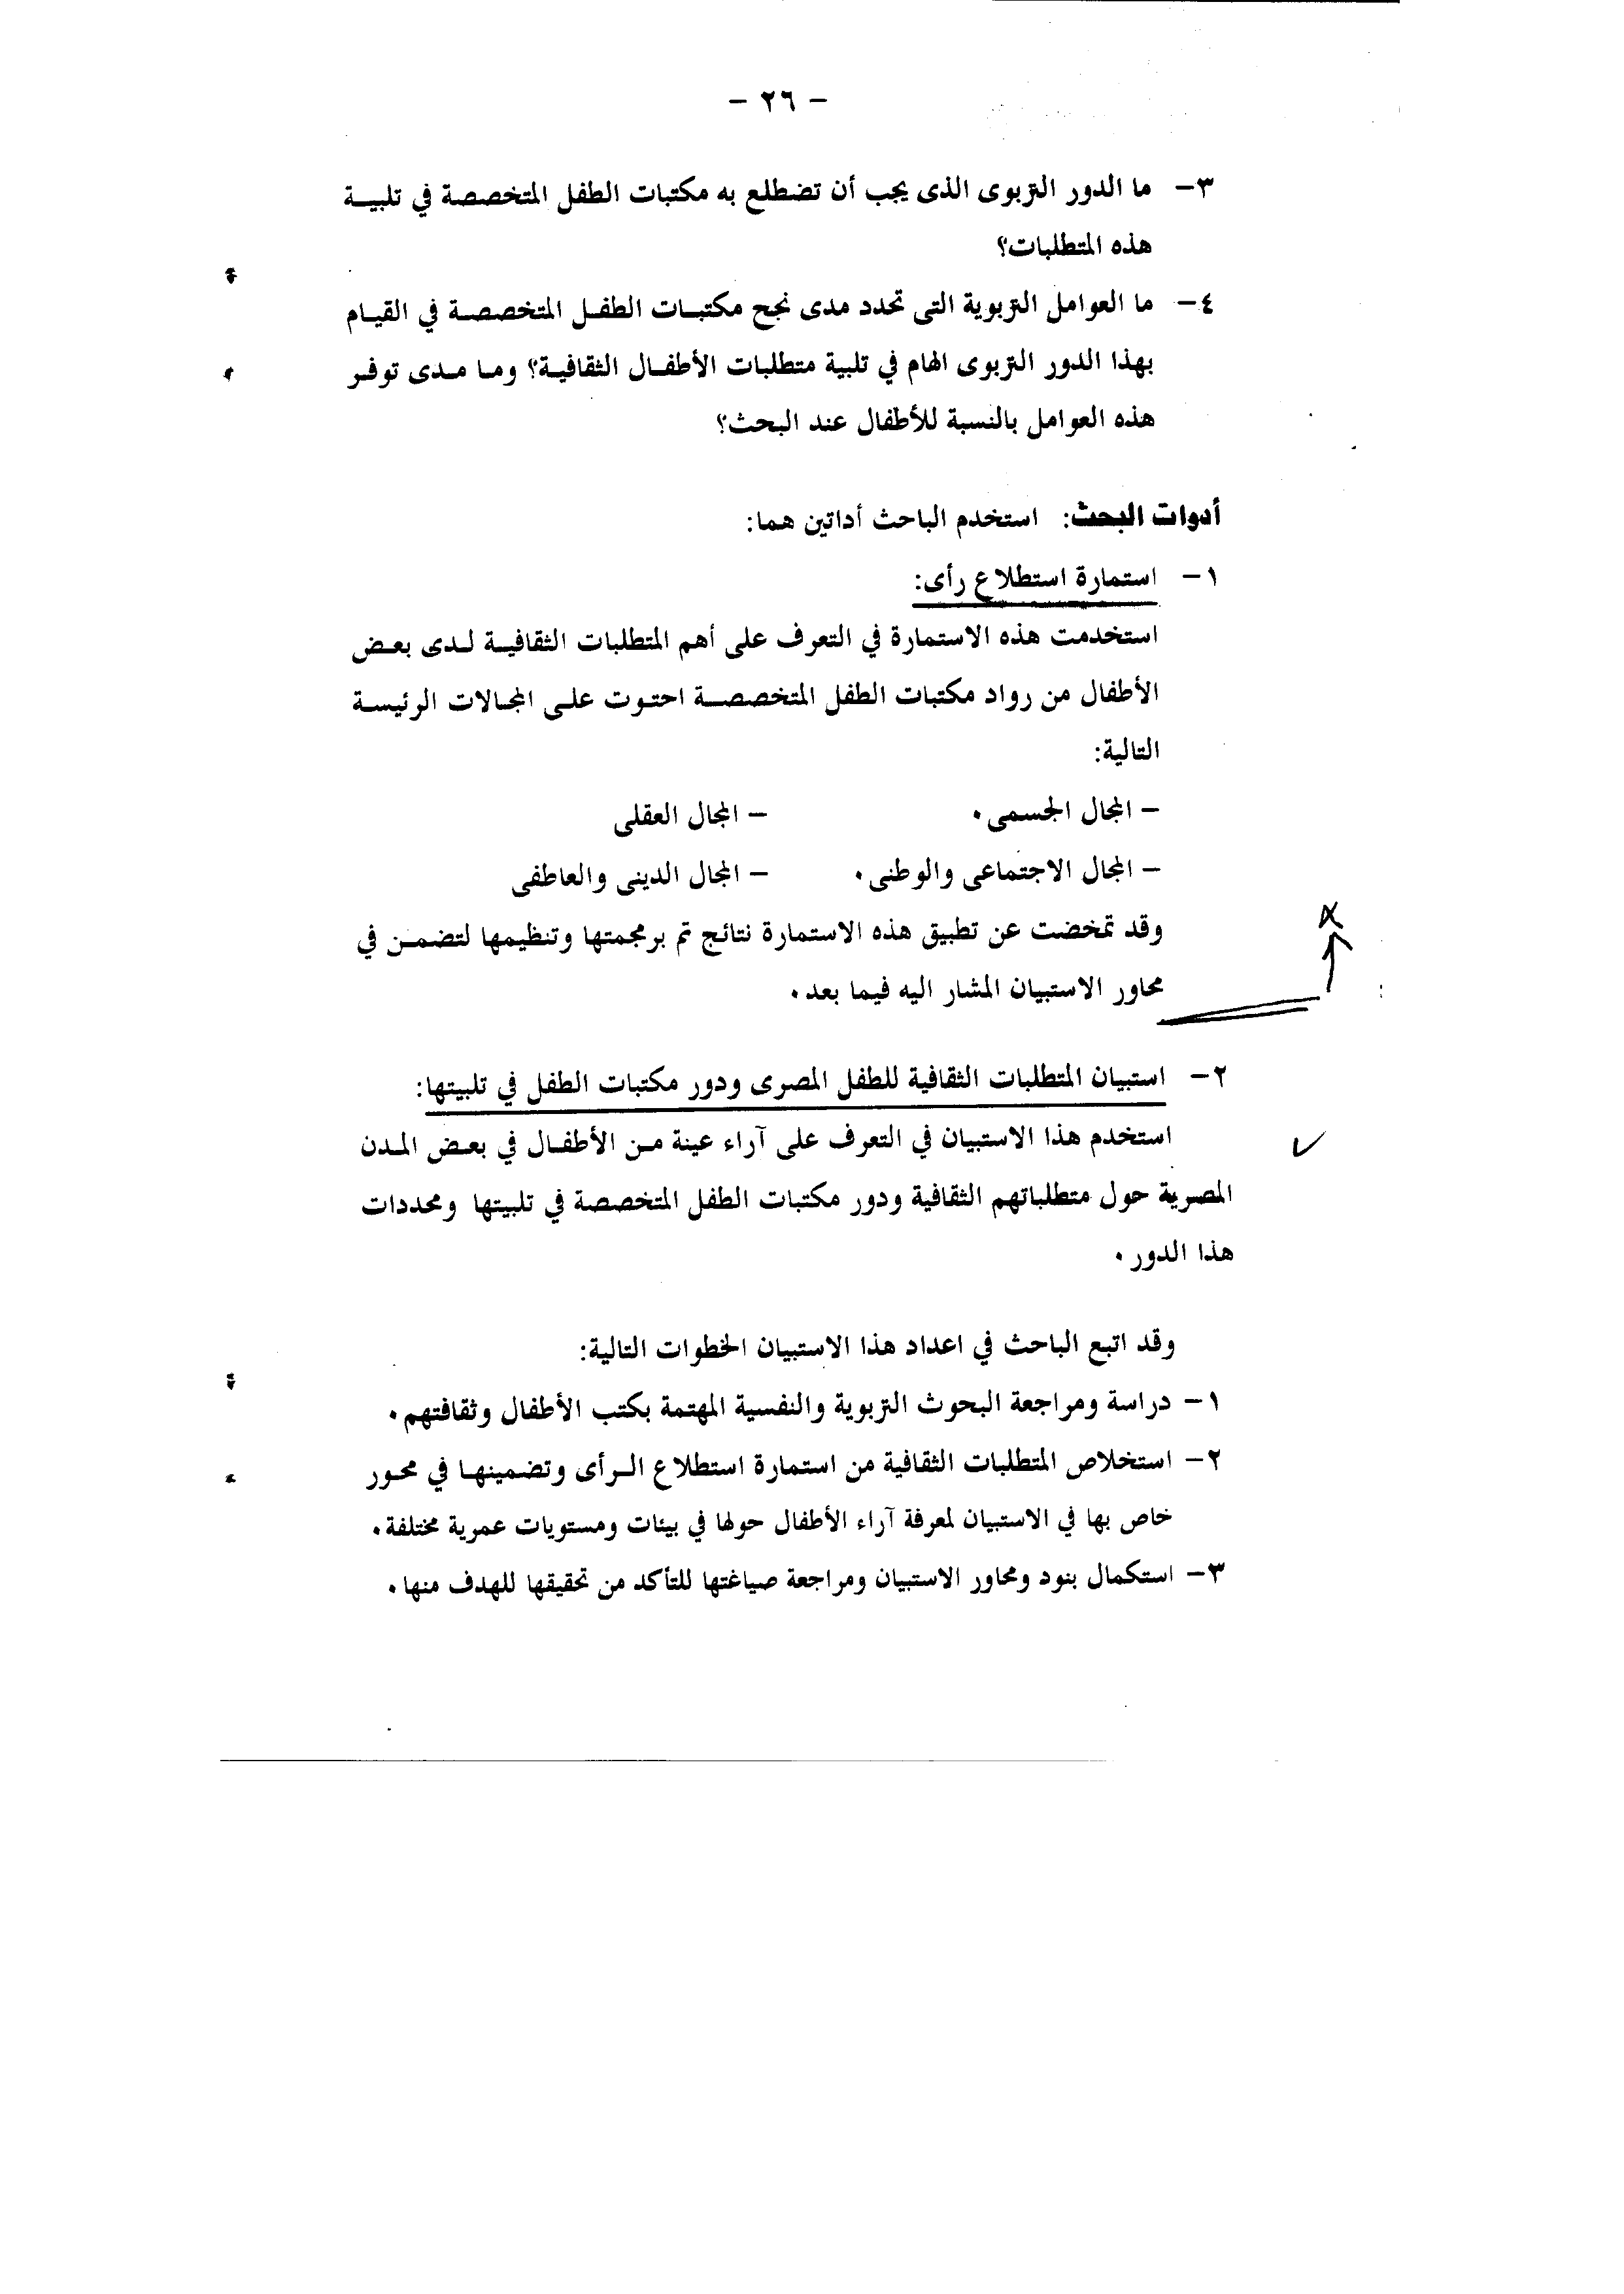 - ٢٦ -
٣- ما الدور التربوى الذى يجب أن تضطلع به مكتبات الطفل المتخصصة في تلبيـــة
هذه المتطلبات؟
٤- ما العوامل التربوية التى تحدد مدى نجح مكتبـات الطفـل المتخصصـة في القيـام
بهذا الدور التربوى الهام في تلبية متطلبات الأطفـال الثقافيـة؟ ومـا مـدى توفـر
هذه العوامل بالنسبة للأطفال عند البحث؟
أدوات البحث: استخدم الباحث أداتين هما:
١- استمارة استطلاع رأى:
استخدمت هذه الاستمارة في التعرف على أهم المتطلبات الثقافيـة لـدى بعـض
الأطفال من رواد مكتبات الطفل المتخصصـة احتـوت علـى المجـالات الرئيسـة
التالية:
- المجال الجسمى. - المجال العقلى
- المجال الاجتماعى والوطنى. - المجال الدينى والعاطفى
وقد تمخضت عن تطبيق هذه الاستمارة نتائج تم برمجمتها وتنظيمها لتضمـن في
محاور الاستبيان المشار اليه فيما بعد.
٢- استبيان المتطلبات الثقافية للطفل المصرى ودور مكتبات الطفل في تلبيتها:
استخدم هذا الاستبيان في التعرف على آراء عينة مـن الأطفـال في بعـض المـدن
المصرية حول متطلباتهم الثقافية ودور مكتبات الطفل المتخصصة في تلبيتها ومحددات
هذا الدور.
وقد اتبع الباحث في اعداد هذا الاستبيان الخطوات التالية:
١- دراسة ومراجعة البحوث التربوية والنفسية المهتمة بكتب الأطفال وثقافتهم.
٢- استخلاص المتطلبات الثقافية من استمارة استطلاع الـرأى وتضمينهـا في محـور
خاص بها في الاستبيان لمعرفة آراء الأطفال حولها في بيئات ومستويات عمرية مختلفة.
٣- استكمال بنود ومحاور الاستبيان ومراجعة صياغتها للتأكد من تحقيقها للهدف منها.